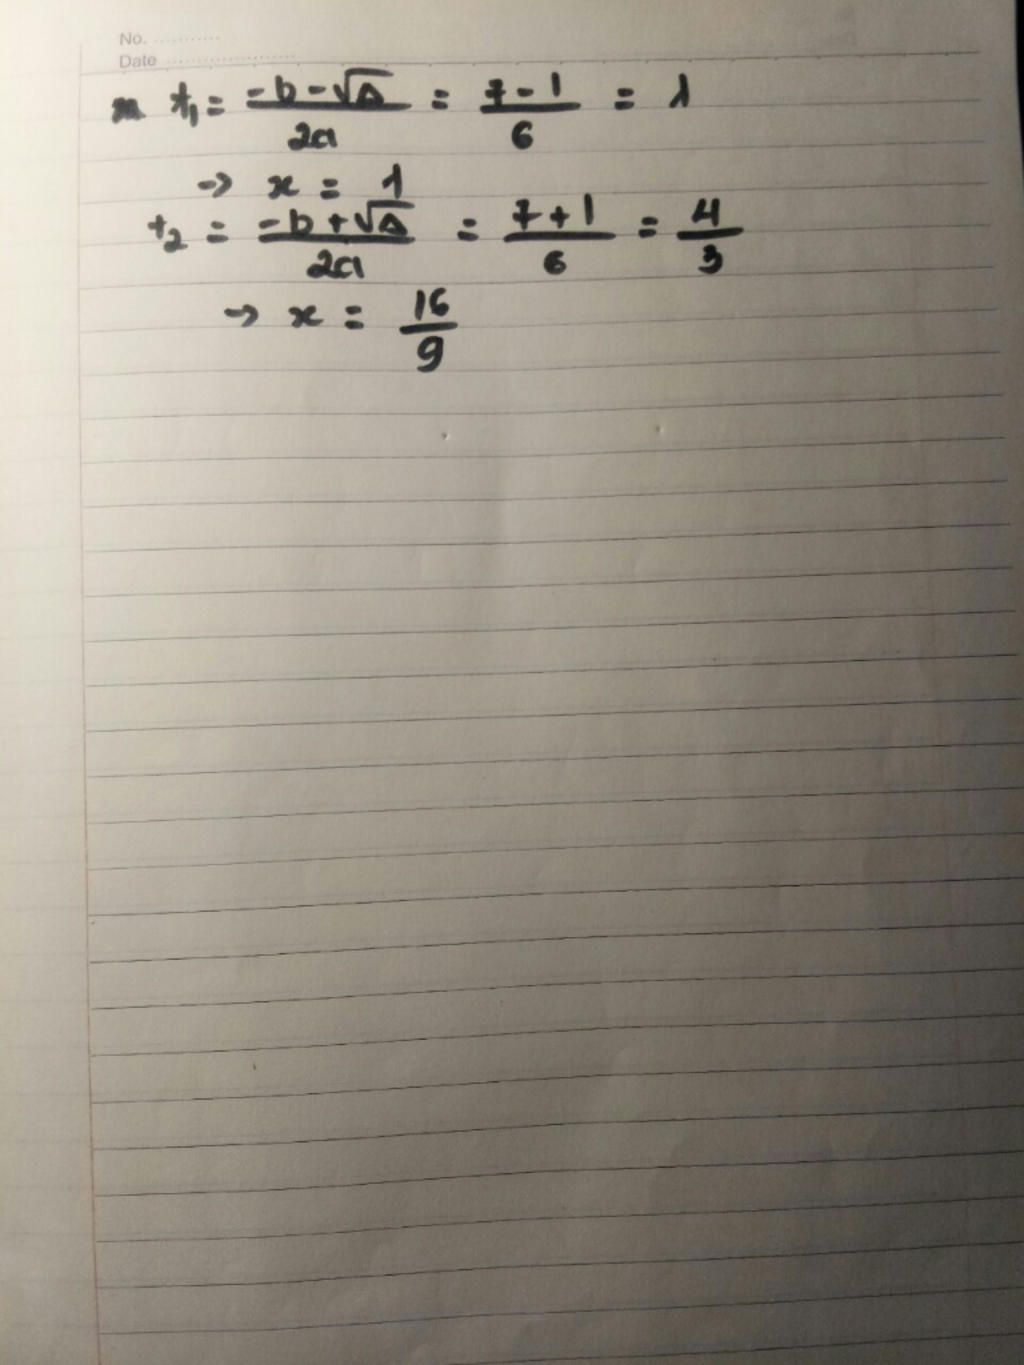 No. ...........
Date ......................
t₁ = (-b - √Δ)/2a = (7 - 1)/6 = 1
→ x = 1
t₂ = (-b + √Δ)/2a = (7 + 1)/6 = 4/3
→ x = 16/9